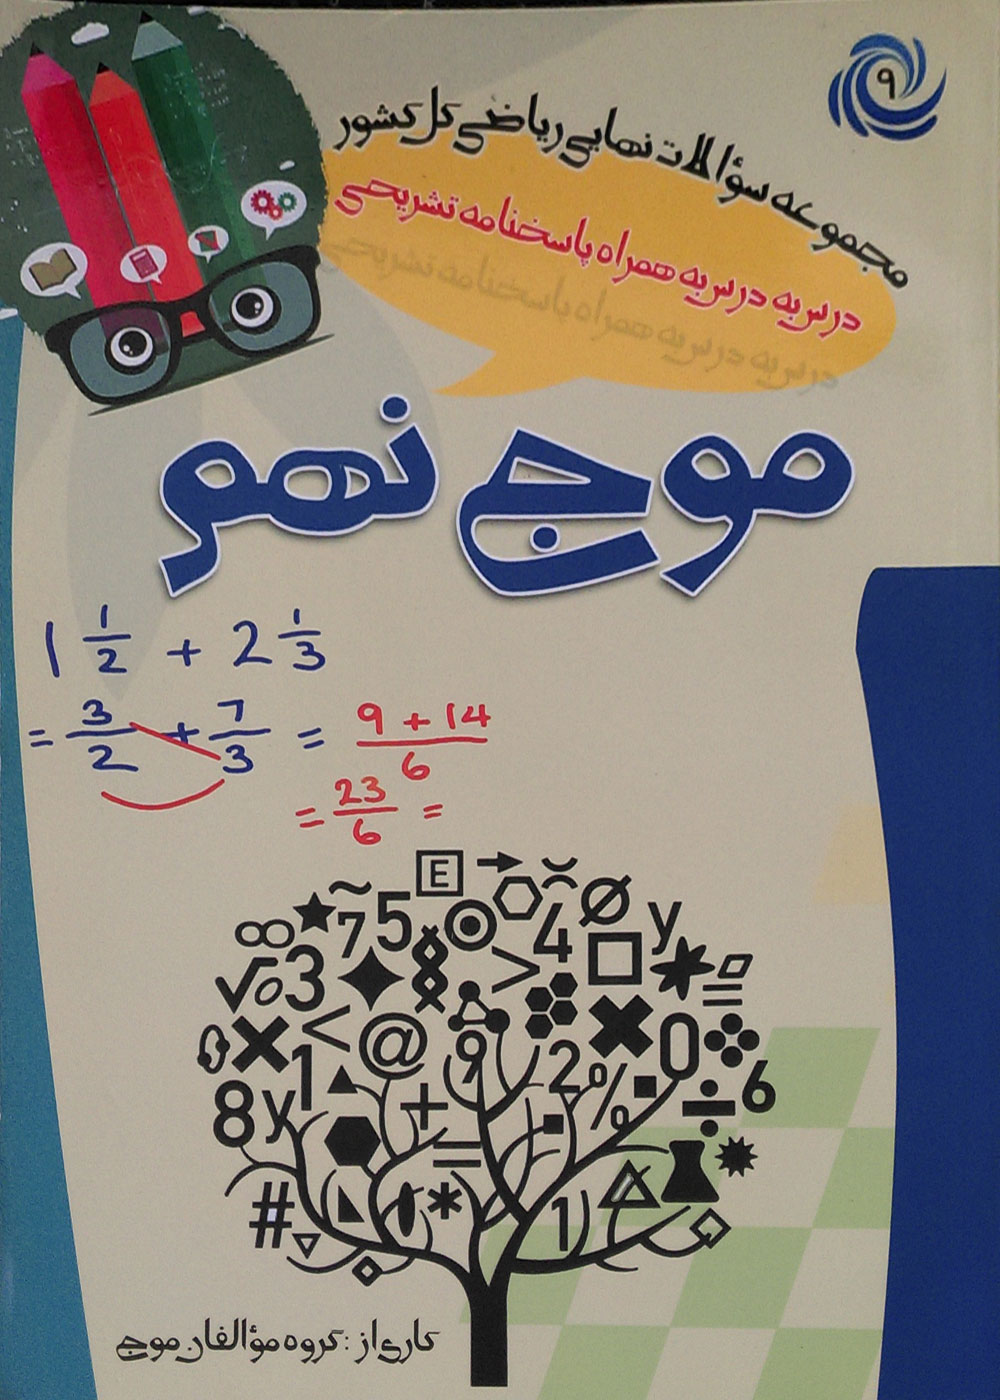 ۹
مجموعه سؤالات نهایی ریاضی کل کشور
درس به درس به همراه پاسخنامه تشریحی
درس به درس به همراه پاسخنامه تشریحی
موج نهم
1 1/2 + 2 1/3
= 3/2 + 7/3 = (9 + 14)/6
= 23/6 =
E → ∅
∞ ~ 7 5 4 y
√ 3 >
× < @ 9 2 % 0
8 y 1 + = ÷ 6
# * 1
کاری از : گروه مؤالفان موج